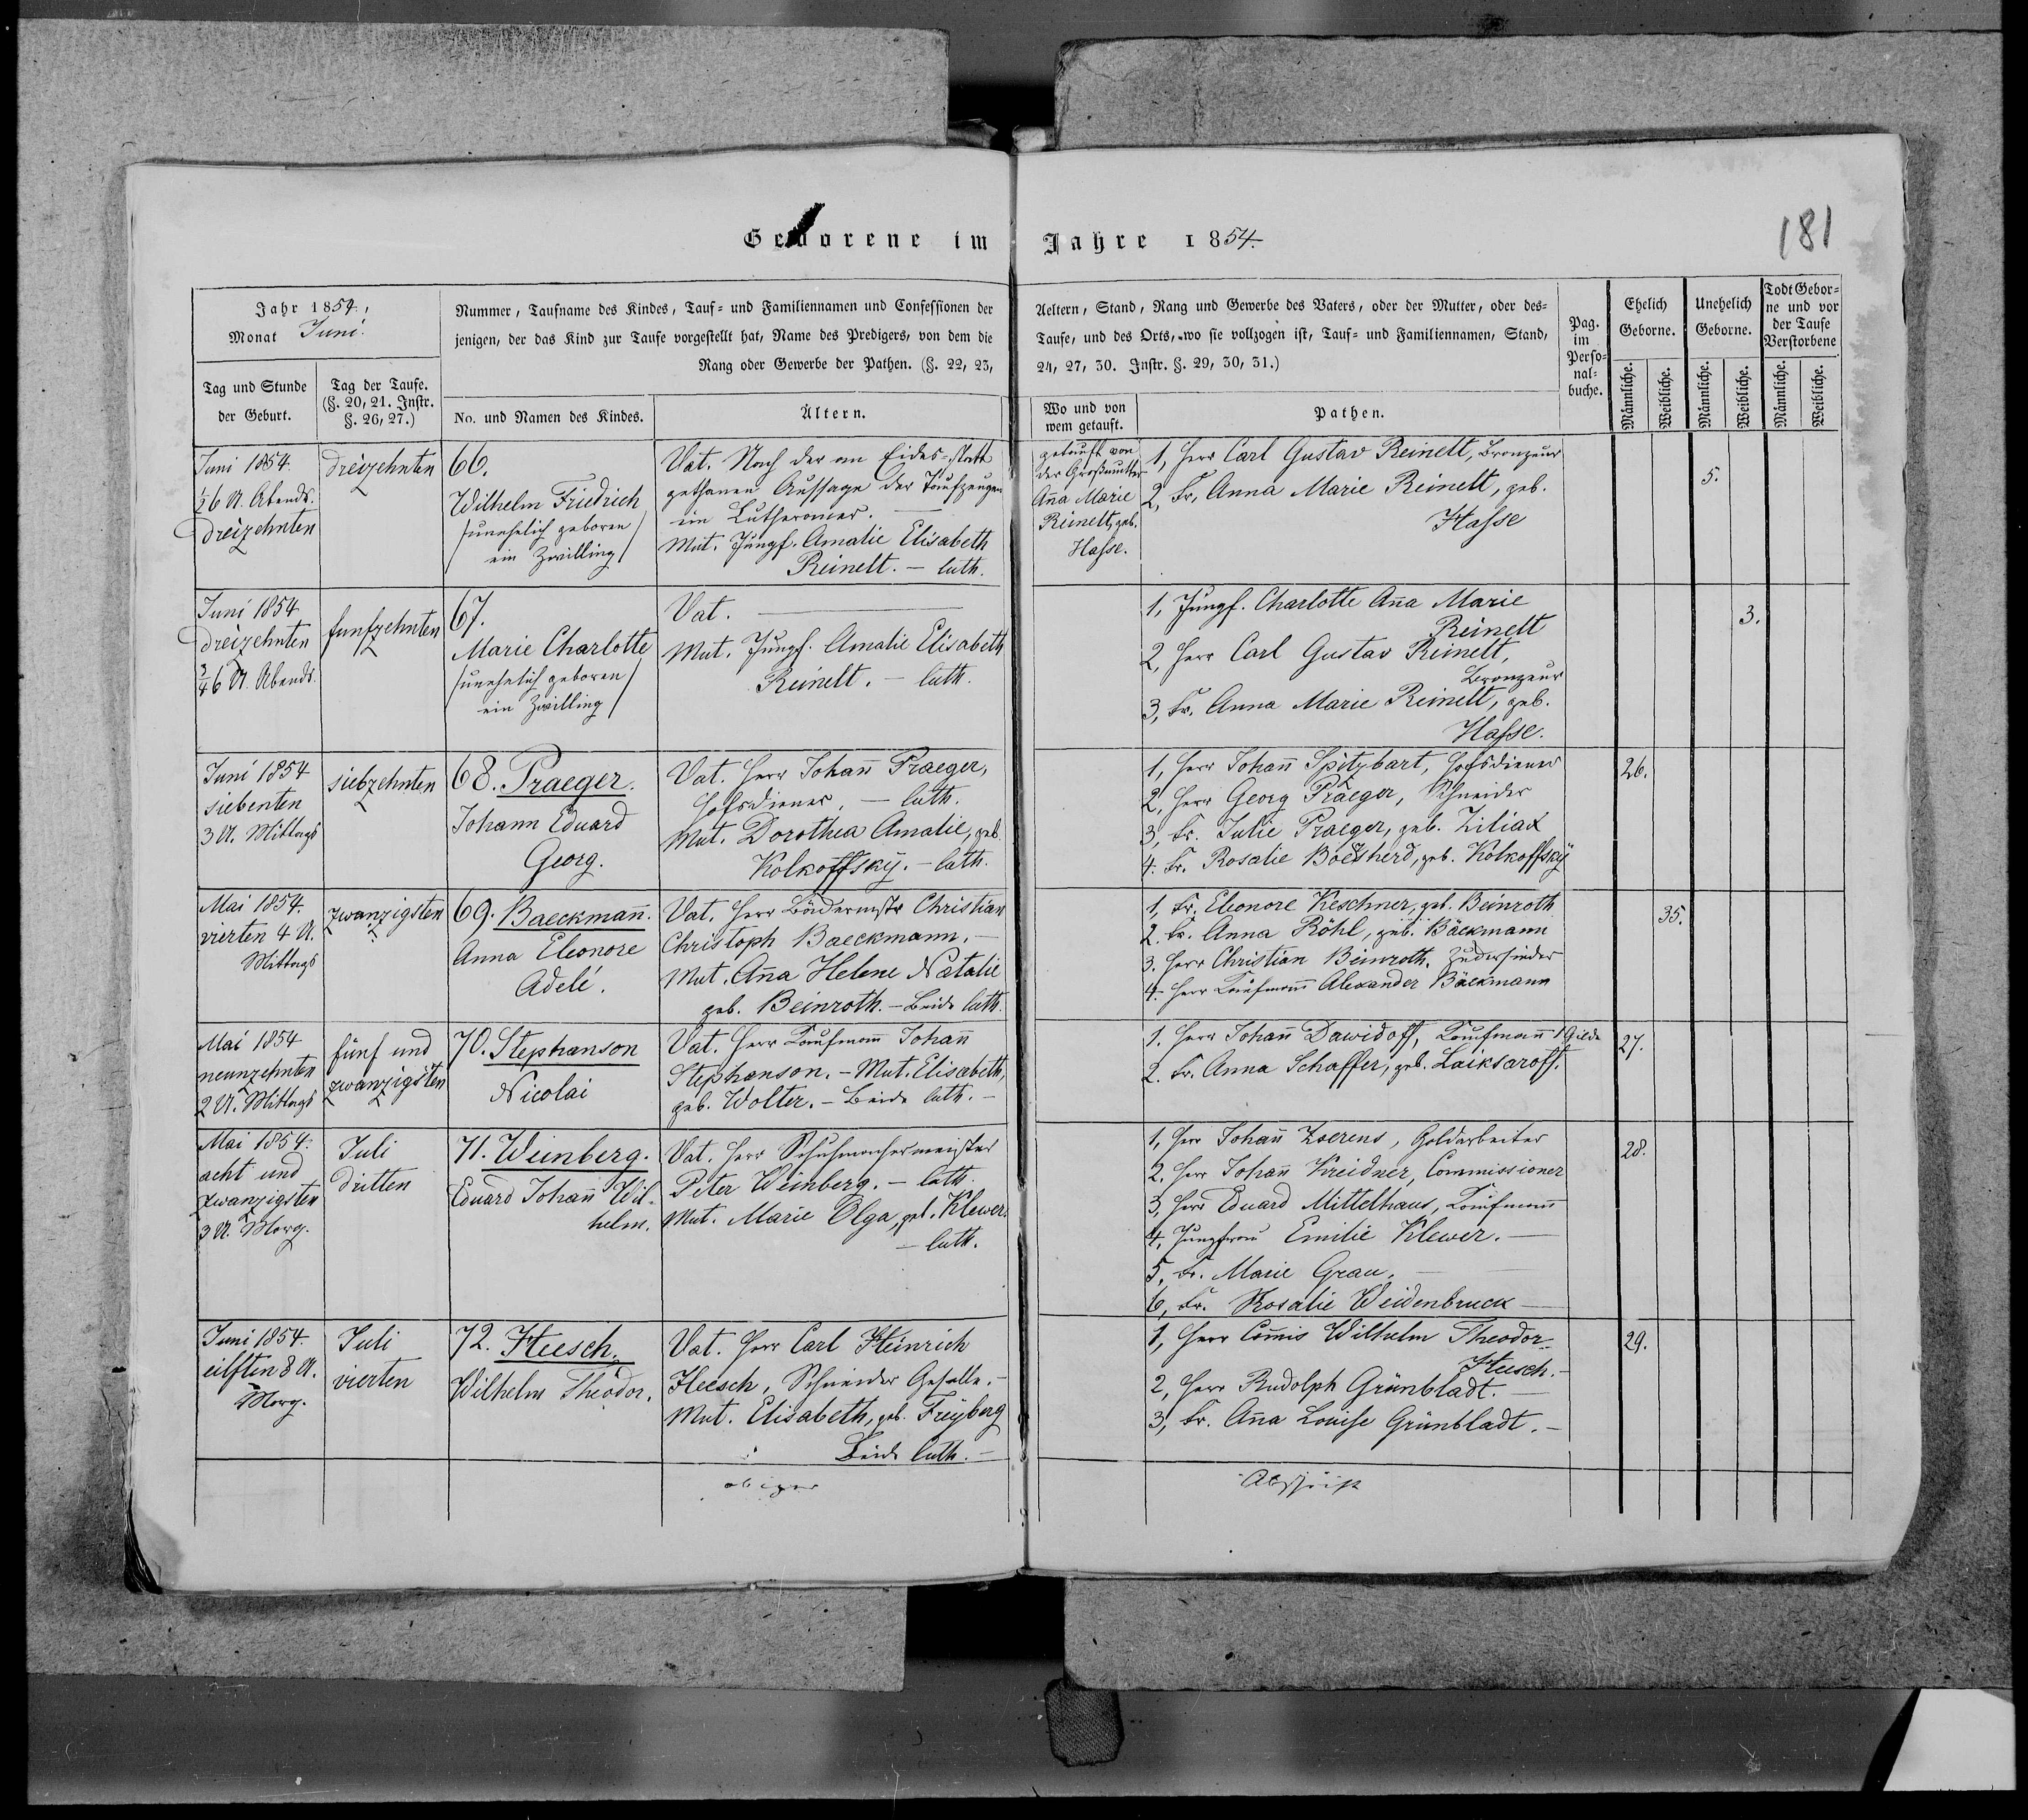 Geborene im Jahre 1854.
181
Jahr 1854.,
Monat Juni.
Nummer, Taufname des Kindes, Tauf- und Familiennamen und Confessionen der
jenigen, der das Kind zur Taufe vorgestellt hat, Name des Predigers, von dem die
Rang oder Gewerbe der Pathen. (§. 22, 23,
Aeltern, Stand, Rang und Gewerbe des Vaters, oder der Mutter, oder des-
Taufe, und des Orts, wo sie vollzogen ist, Tauf- und Familiennamen, Stand,
24, 27, 30. Instr. §. 29, 30, 31.)
Pag.
im
Perso-
nal-
buche.
Ehelich
Geborne.
Unehelich
Geborne.
Todt Gebor-
ne und vor
der Taufe
Verstorbene
Tag und Stunde
der Geburt.
Tag der Taufe.
(§. 20, 21. Instr.
§. 26, 27.)
No. und Namen des Kindes.
Ältern.
Wo und von
wem getauft.
Pathen.
Männliche.
Weibliche.
Männliche.
Weibliche.
Männliche.
Weibliche.
Juni 1854.
½6 U. Abends.
dreizehnten
dreizehnten
66.
Wilhelm Friedrich
/unehelich geboren
ein Zwilling/
Vat. Nach der an Eides-statt
gethanen Aussage der Taufzeugen
ein Lutheraner.
Mut. Jungf. Amalie Elisabeth
Reinelt. – luth.
getauft von
der Großmutter
Aña Marie
Reinelt, geb.
Hasse.
1, Herr Carl Gustav Reinelt, Bronzeur
2, Fr. Anna Marie Reinelt, geb.
Hasse
5.
Juni 1854
dreizehnten
¾6 U. Abends.
funfzehnten
67.
Marie Charlotte
/unehelich geboren/
ein Zwilling/
Vat.
Mut. Jungf. Amalie Elisabeth
Reinelt. – luth.
1, Jungf. Charlotte Aña Marie
Reinelt
2, Herr Carl Gustav Reinelt,
Bronzeur
3, Fr. Anna Marie Reinelt, geb.
Hasse.
3.
Juni 1854
siebenten
3 U. Mittags
siebzehnten
68. Praeger.
Johann Eduard
Georg.
Vat. Herr Johañ Praeger,
Hofsdiener. – luth.
Mut. Dorothea Amalie, geb.
Kolkoffsky. – luth.
1, Herr Johañ Spitzbart, Hofsdiener
2, Herr Georg Praeger, Schneider
3, Fr. Julie Praeger, geb. Ziliax
4. Fr. Rosalie, geb. Kolkoffsky
26.
Mai 1854.
vierten 4 U.
Mittags
zwanzigsten
69. Baeckmañ.
Anna Eleonore
Adelé.
Vat. Herr Christian
Christoph Baeckmann. –
Mut. Aña Helene Natalie
geb. Beinroth. – Beide luth.
1, Fr. Eleonore Keschner, geb. Beinroth
2. Fr. Anna Röhl, geb. Bäckmann
3. Herr Christian Beinroth, Zuckersieder
4. Herr Kaufmann Alexander Bäckmann
35.
Mai 1854
neunzehnten
2 U. Mittags
fünf und
zwanzigsten
70. Stephanson
Nicolai
Vat. Herr Kaufmañ Johañ
Stephanson. – Mut. Elisabeth,
geb. Wolter. – Beide luth. –
1. Herr Johañ Dawidoff, Kaufmann 1 Gilde
2. Fr. Anna Schaffer, geb. Laiksaroff.
27.
Mai 1854.
acht und
zwanzigsten
3 U. Morg.
Juli
dritten
71. Weinberg.
Eduard Johañ Wil-
helm.
Vat. Herr Schuhmachermeister
Peter Weinberg. – luth.
Mut. Marie Olga, geb. Klewer.
– luth.
1, Herr Johañ Zoerens, Goldarbeiter
2, Herr Johañ Kreidner, Commissioner
3, Herr Eduard Mittelhaus, Kaufmann
4, Jungfrau Emilie Klewer. –
5, Fr. Marie Grau.
6, Fr. Rosalie Weidenbruck –
28.
Juni 1854.
eilften 8 U.
Morg.
Juli
vierten
72. Heesch.
Wilhelm Theodor.
Vat. Herr Carl Heinrich
Heesch, Schneider Geselle. –
Mut. Elisabeth, geb. Freyberg
Beide luth. –
1, Herr Com̃is Wilhelm Theodor
Heesch. –
2, Herr Rudolph Grünbladt. –
3, Fr. Aña Louise Grünbladt. –
29.
obiger
Abschrift